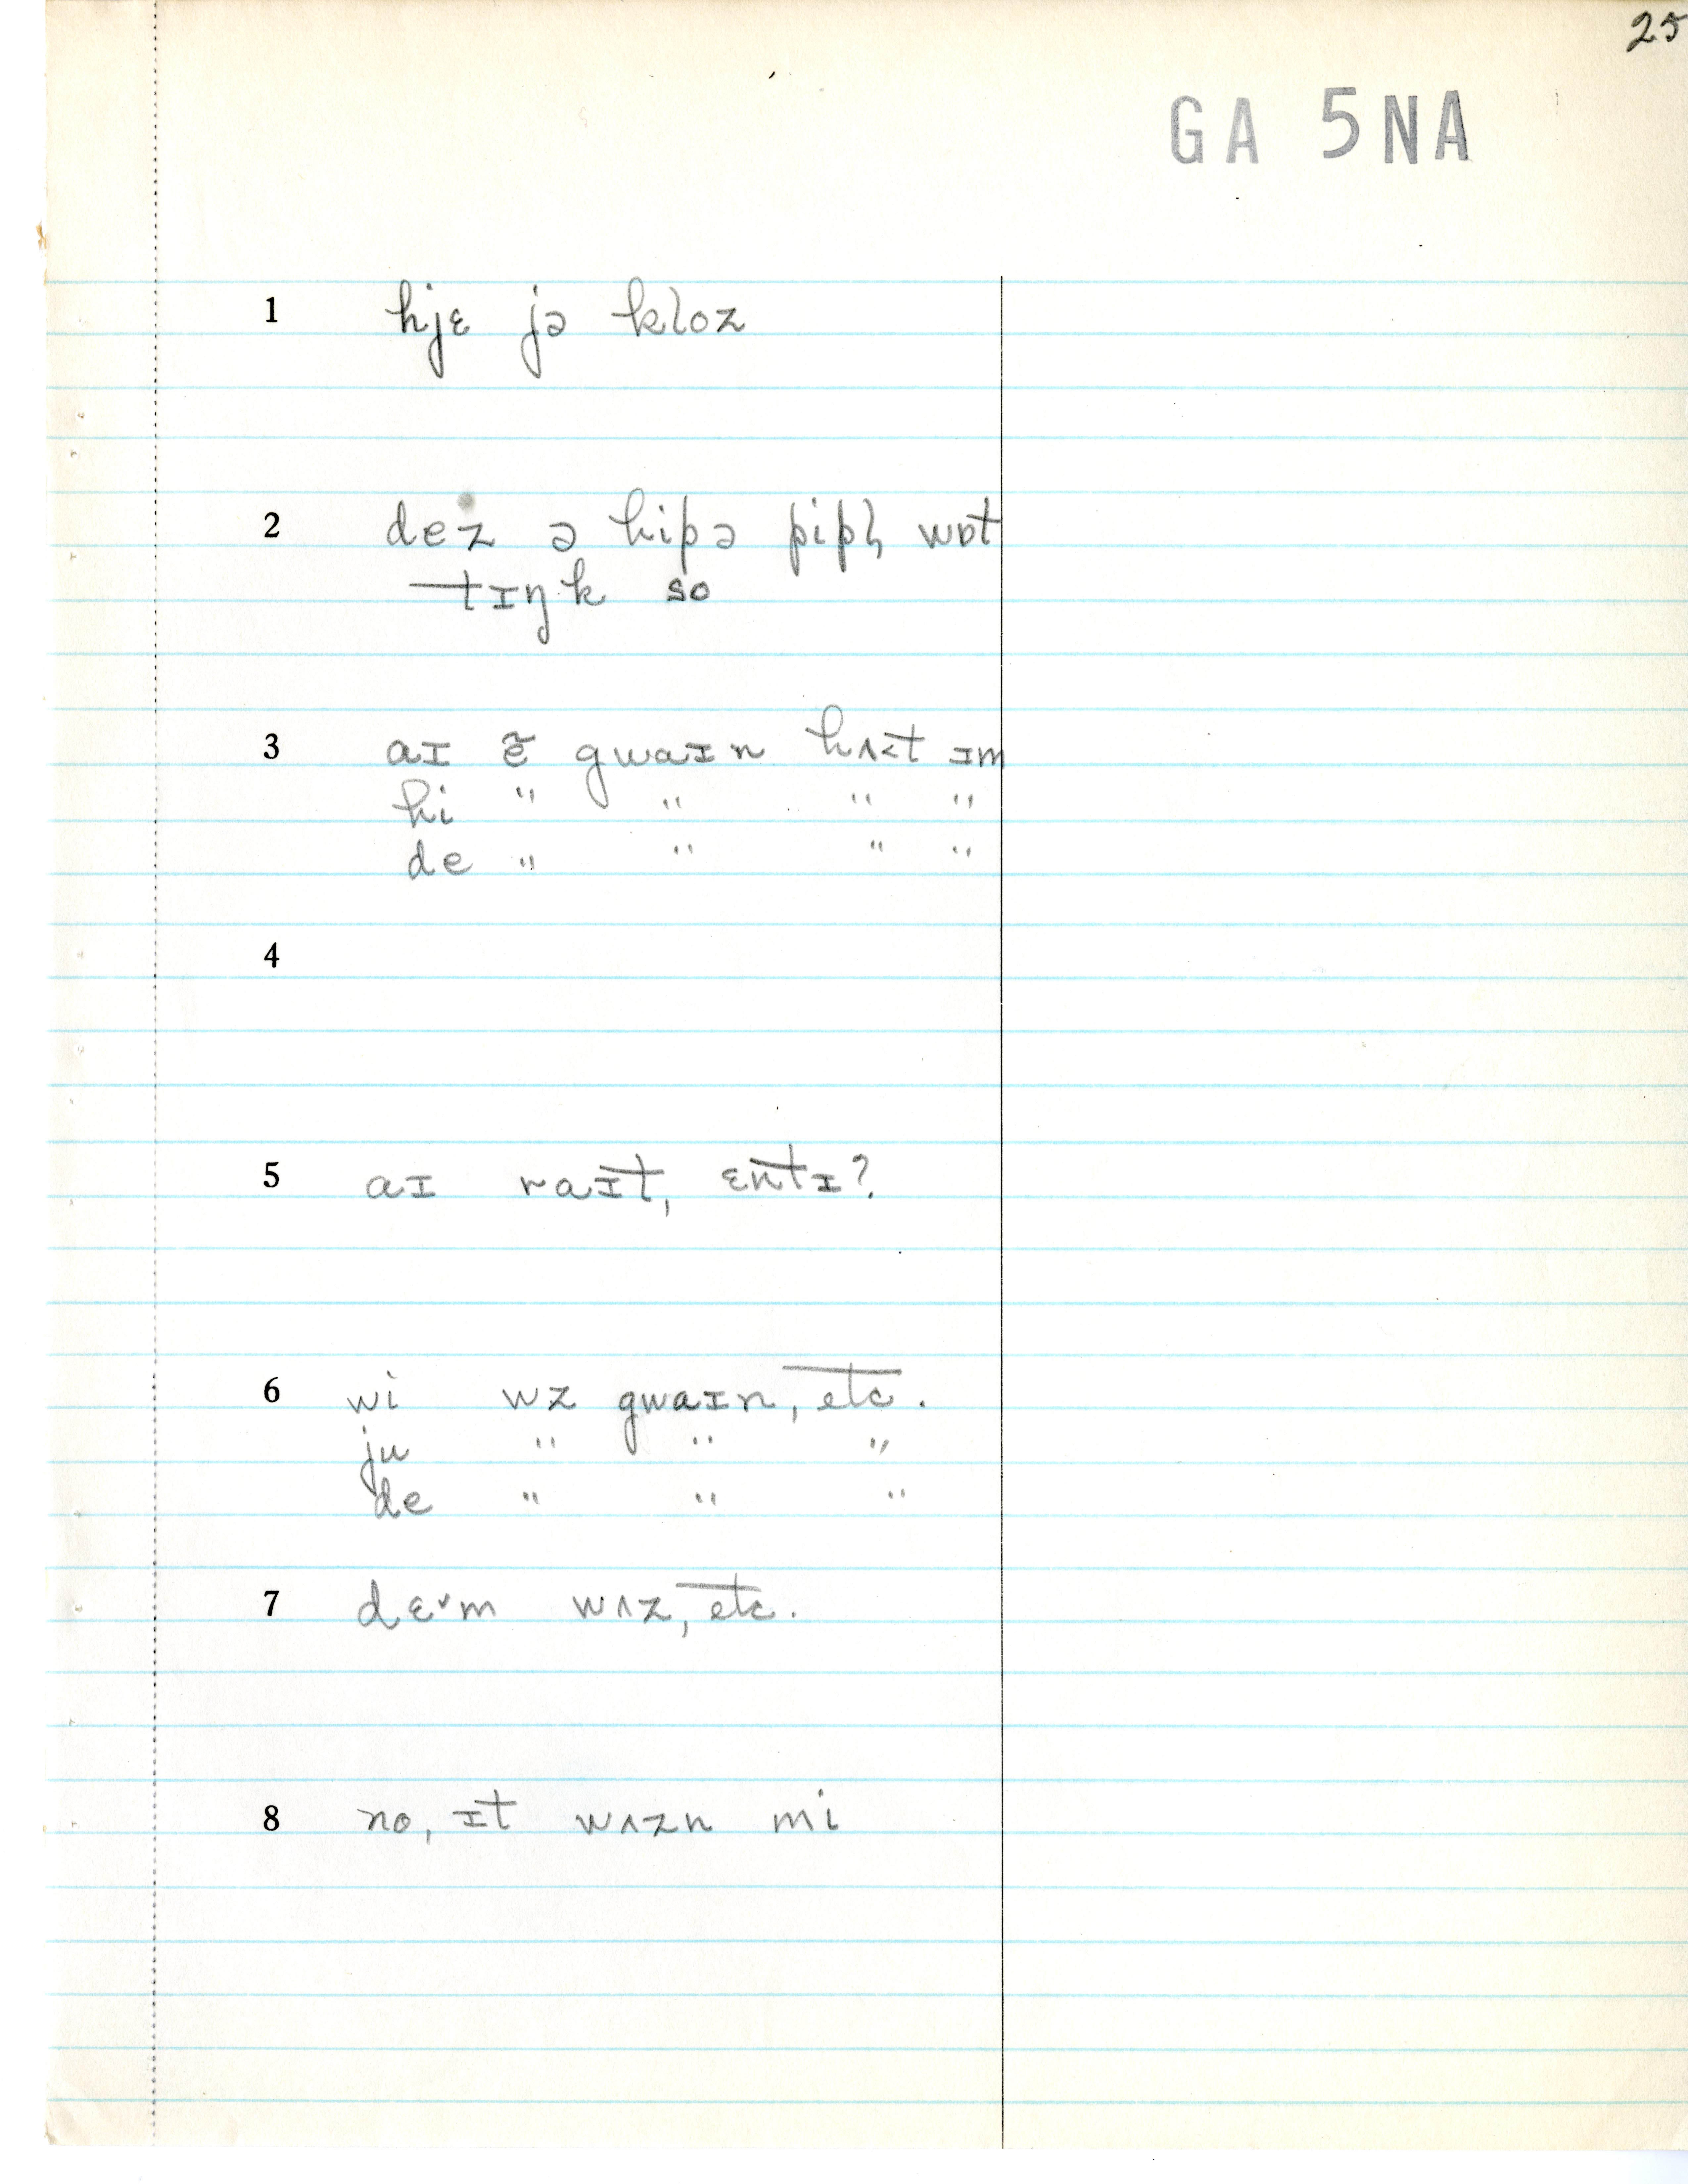 25
GA 5NA
1 hjɛ jə kloz
2 dez ə hipə pipl̩ wɒt
tɪŋk so
3 aɪ ẽ gwaɪn hʌ˂t ɪm
hi " " " "
de " " " "
4
5 aɪ raɪt, ɛntɪ?
6 wi wz gwaɪn, etc.
ju " " "
de " " "
7 dɛ˅m wʌz, etc.
8 no, ɪt wʌzn mi